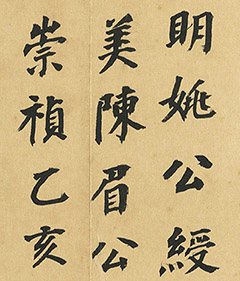 明姚公綬
美陳眉公
崇禎乙亥